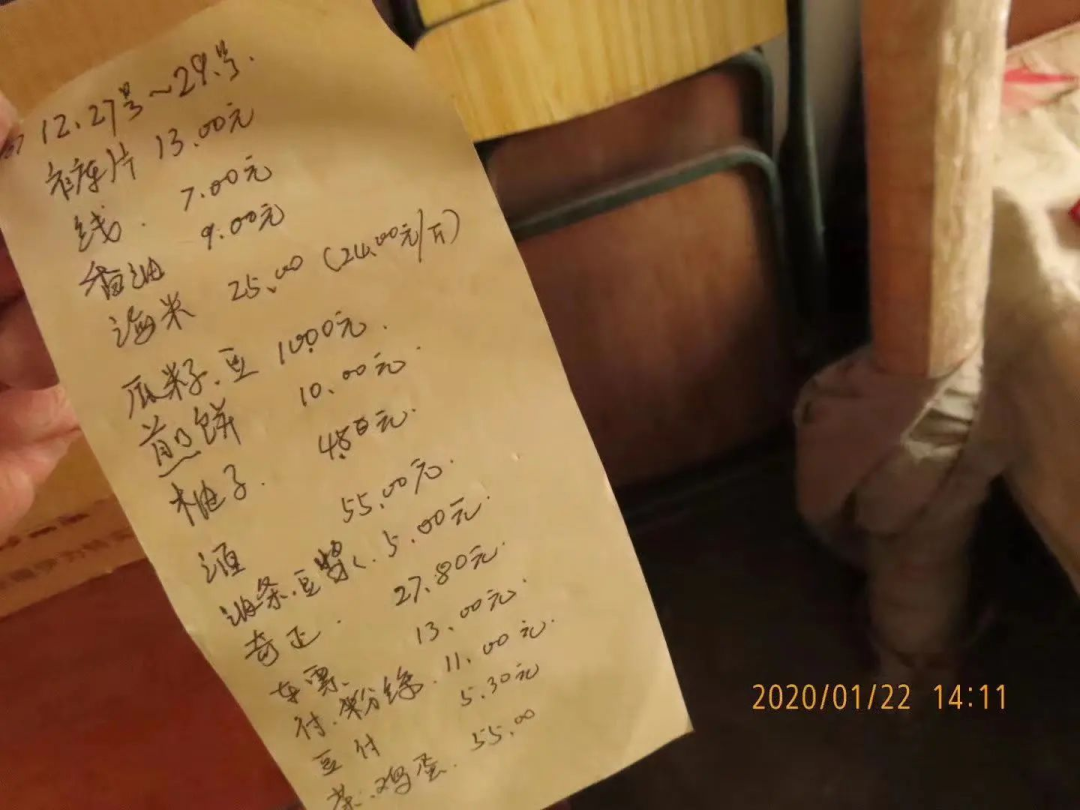 12.27号~29号.
裤片 13.00元
线. 7.00元
香油 9.00元
海米 25.00 (24.00元/斤)
瓜籽.豆 10.00元.
煎饼 10.00元.
柚子. 4.80元.
酒 55.00元.
油条.豆浆. 5.00元
奇正. 27.80元.
车票. 13.00元.
付.粉条. 11.00元.
豆付 5.30元
鸡蛋. 55.00
2020/01/22 14:11